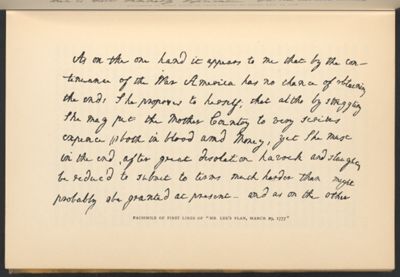 As on the one hand it appears to me that by the con-
tinuance of the War America has no chance of obtaining
the ends She proposes to herself, that altho by struggling
She may put the Mother Country to very serious
expence both in blood and Money, yet She must
in the end, after great desolation havock and slaughter
be reduc'd to submit to terms much harder than might
probably be granted at present - and as on the other
FACSIMILE OF FIRST LINES OF "MR. LEE'S PLAN, MARCH 29, 1777"